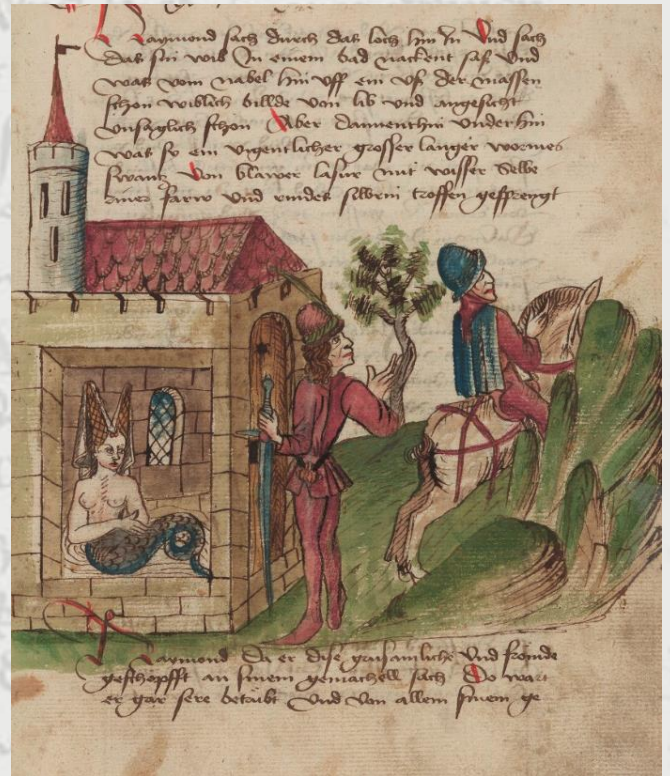 Raymond sach durch das loch hin Jn Vnd sach
das sin wib Jn einem bad nackent saß Vnd
was vom nabel hin vff ein vß der massen
schon wiblich billde von lib vnd angesicht
vnsaglich schon Aber dannenthin vnder hin
was sy ein grosser langer wormes
swantz Von blawer lasur mit wisser Selbe
farw Vnd silbrin troffen gesprengt
Raymond da er dise grusamliche Vnd frömde
geschöpfft an sinem gemachell sach Do wart
er gar sere betrübt Vnd Von allem sinem ge